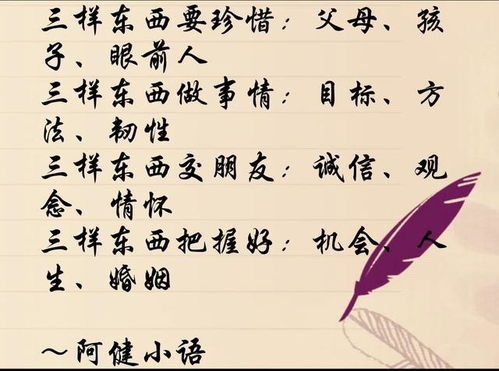 三样东西要珍惜：父母、孩
子、眼前人
三样东西做事情：目标、方
法、韧性
三样东西交朋友：诚信、观
念、情怀
三样东西把握好：机会、人
生、婚姻
～阿健小语